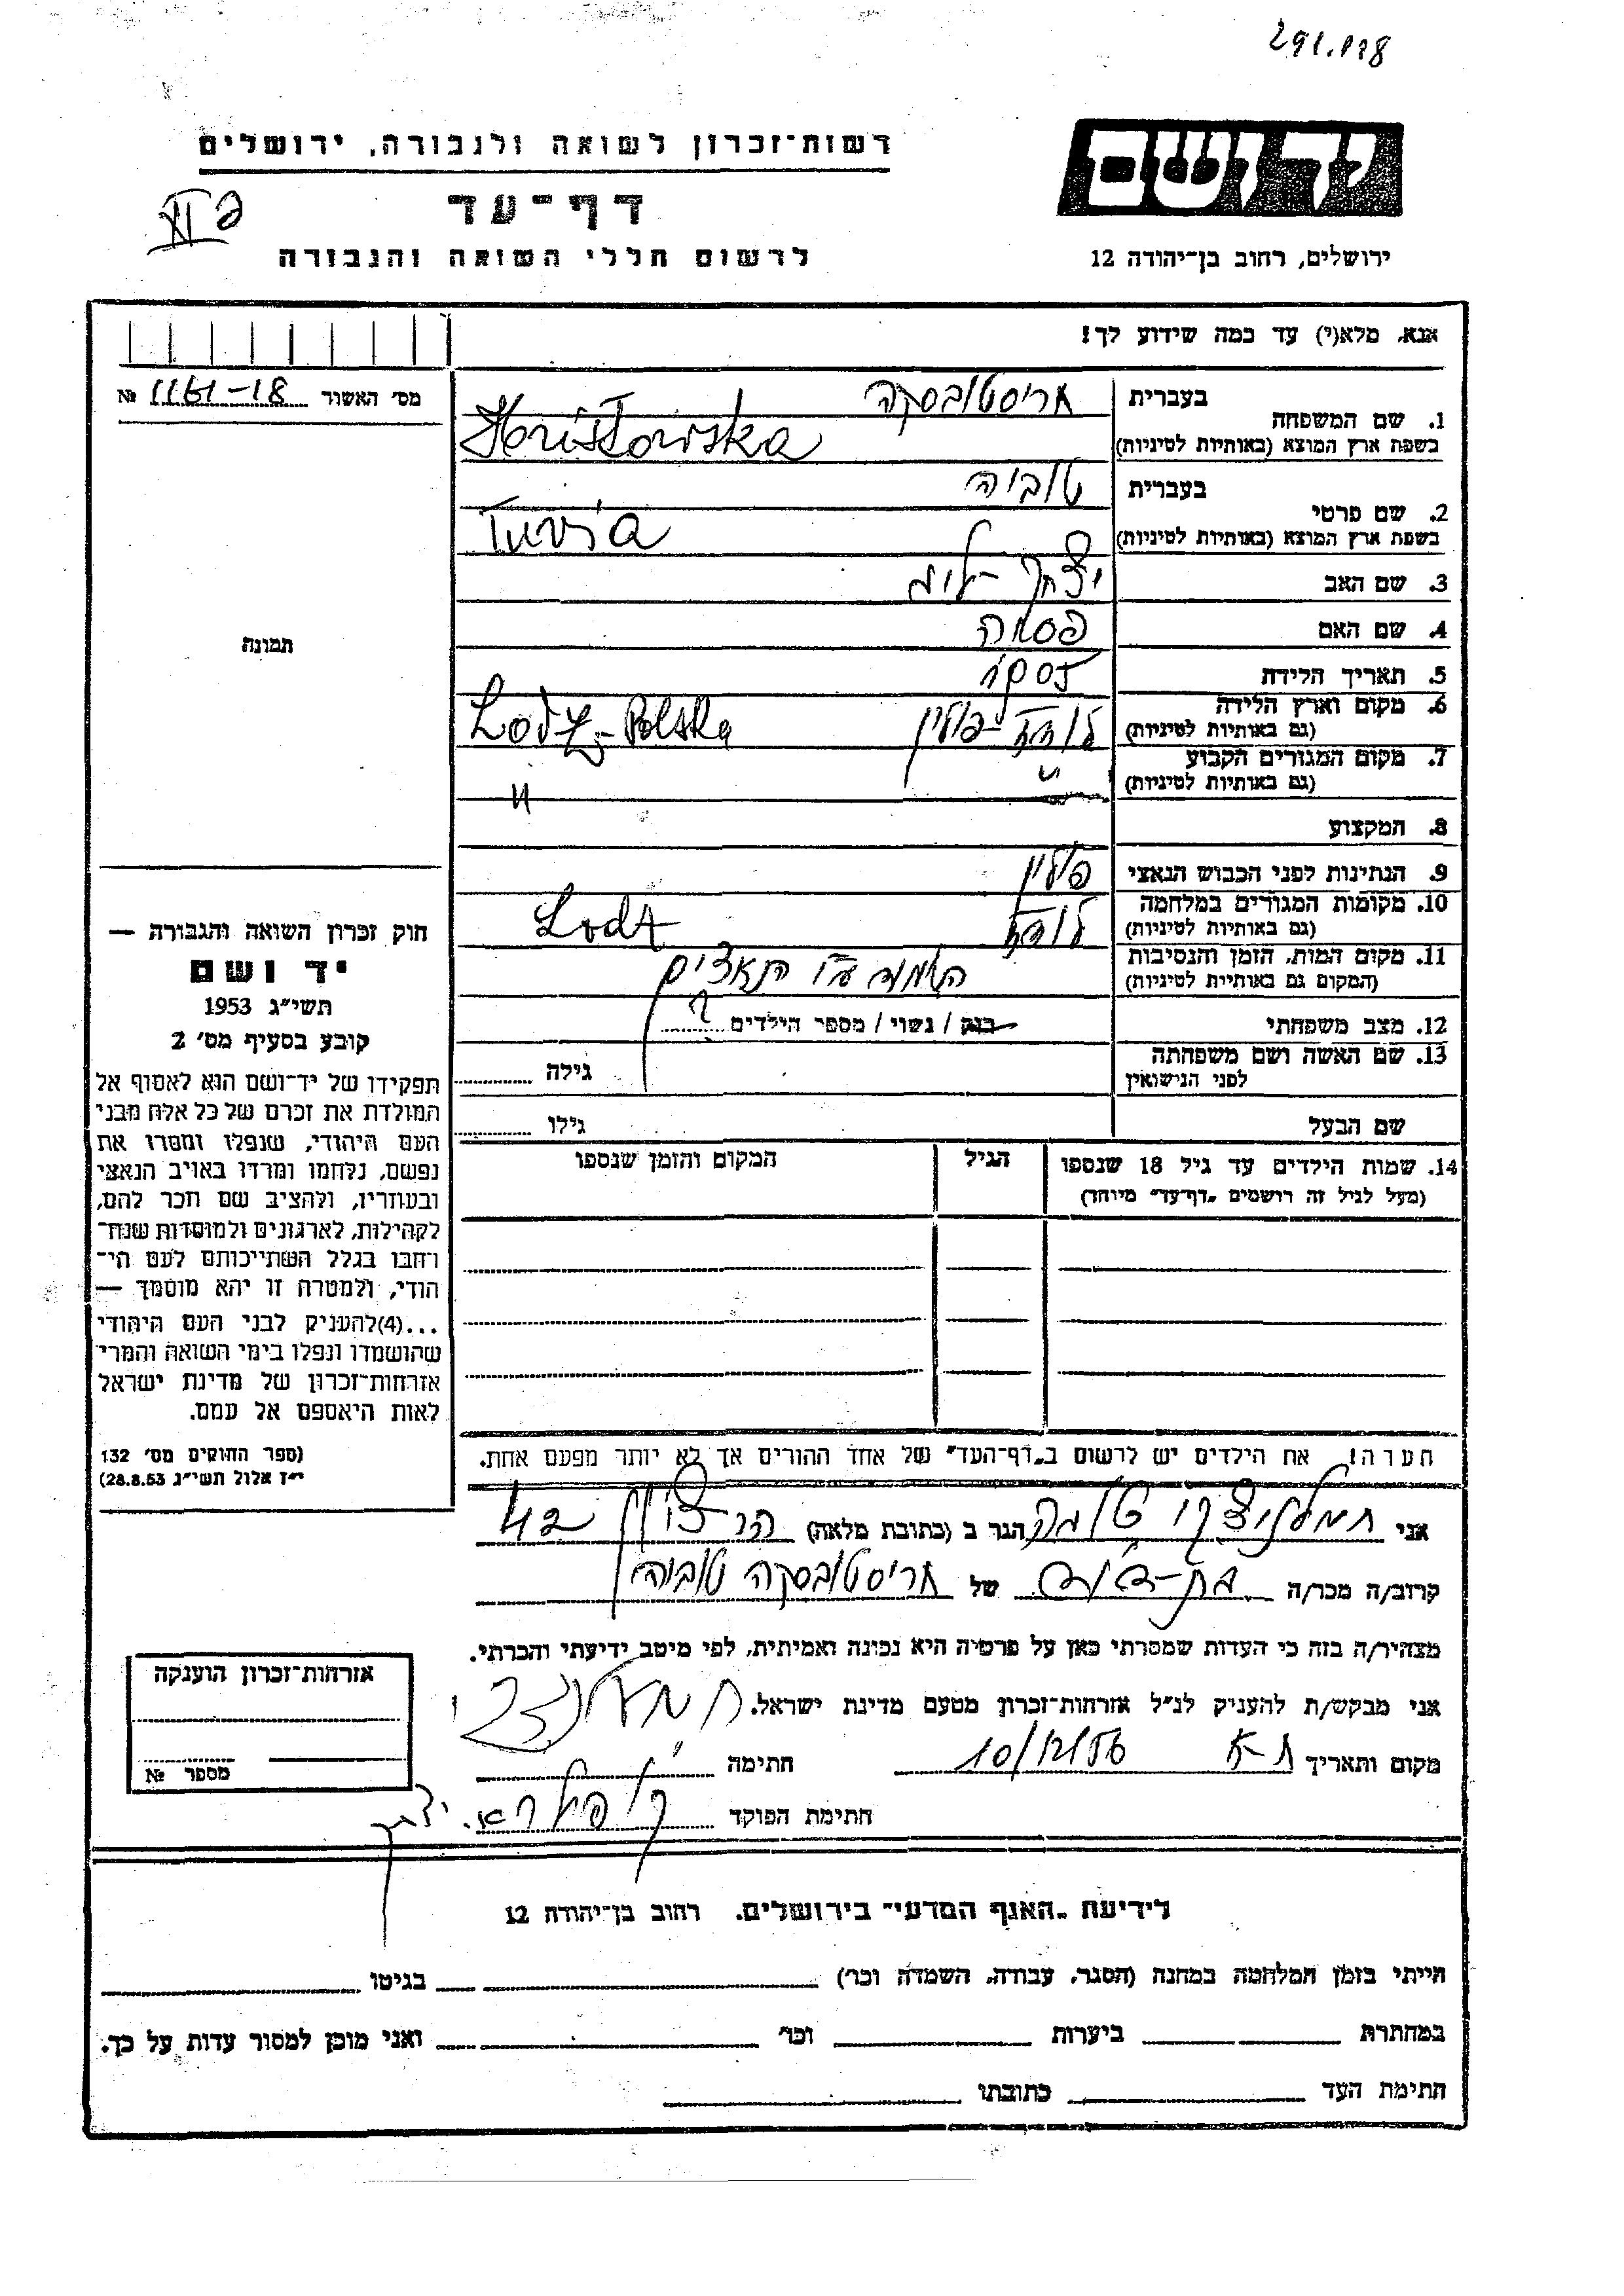 291.118
יד ושם
רשות־זכרון לשואה ולגבורה, ירושלים
דף־עד
לרשום חללי השואה והגבורה
ירושלים, רחוב בן־יהודה 12
אנא, מלא(י) עד כמה שידוע לך!
מס׳ האשור 1151-18 №
תמונה
1. שם המשפחה
בעברית חריסטובסקה
בשפת ארץ המוצא (באותיות לטיניות) Horistowska
2. שם פרטי
בעברית טוביה
בשפת ארץ המוצא (באותיות לטיניות) Tuvia
3. שם האב יצחק
4. שם האם
5. תאריך הלידה 1905
6. מקום וארץ הלידה (גם באותיות לטיניות) לודז׳ - פולין Lodz - Polska
7. מקום המגורים הקבוע (גם באותיות לטיניות) " "
8. המקצוע
9. הנתינות לפני הכבוש הנאצי פולין
10. מקומות המגורים במלחמה (גם באותיות לטיניות) לודז Lodz
11. מקום המות, הזמן והנסיבות (המקום גם באותיות לטיניות) הושמד ע״י הנאצים
12. מצב משפחתי רווק / נשוי / מספר הילדים ?
13. שם האשה ושם משפחתה לפני הנישואין גילה
שם הבעל גילו
14. שמות הילדים עד גיל 18 שנספו (מעל לגיל זה רושמים „דף־עד״ מיוחד)
הגיל
המקום והזמן שנספו
הערה! את הילדים יש לרשום ב„דף־העד״ של אחד ההורים אך לא יותר מפעם אחת.
חוק זכרון השואה והגבורה —
יד ושם
תשי״ג 1953
קובע בסעיף מס׳ 2
תפקידו של יד־ושם הוא לאסוף אל
המולדת את זכרם של כל אלה מבני
העם היהודי, שנפלו ומסרו את
נפשם, נלחמו ומרדו באויב הנאצי
ובעוזריו, ולהציב שם וזכר להם,
לקהילות, לארגונים ולמוסדות שנח־
רבו בגלל השתייכותם לעם הי־
הודי, ולמטרה זו יהא מוסמך —
...(4)להעניק לבני העם היהודי
שהושמדו ונפלו בימי השואה והמרי
אזרחות־זכרון של מדינת ישראל
לאות היאספם אל עמם.
(ספר החוקים מס׳ 132
י״ז אלול תשי״ג 28.8.53)
אני הגר ב (כתובת מלאה) 42
קרוב/ה מכר/ה בת-דוד של חריסטובסקה טוביה
מצהיר/ה בזה כי העדות שמסרתי כאן על פרטיה היא נכונה ואמיתית, לפי מיטב ידיעתי והכרתי.
אני מבקש/ת להעניק לנ״ל אזרחות־זכרון מטעם מדינת ישראל.
מקום ותאריך ת-א 10/12/56 חתימה
חתימת הפוקד
אזרחות־זכרון הוענקה
מספר №
לידיעת „האגף המדעי״ בירושלים, רחוב בן־יהודה 12
הייתי בזמן המלחמה במחנה (הסגר, עבודה, השמדה וכו׳) בגיטו
במחתרת ביערות וכו׳ ואני מוכן למסור עדות על כך.
חתימת העד כתובתו